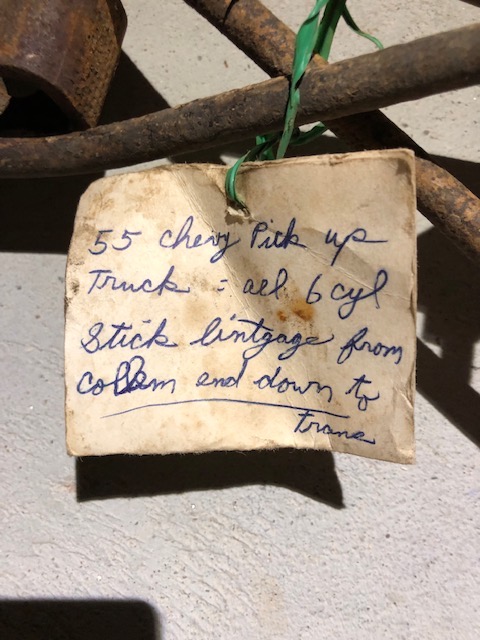 55 chevy Pick up
Truck = all 6 cyl
Stick lintgage from
collem end down to
trans